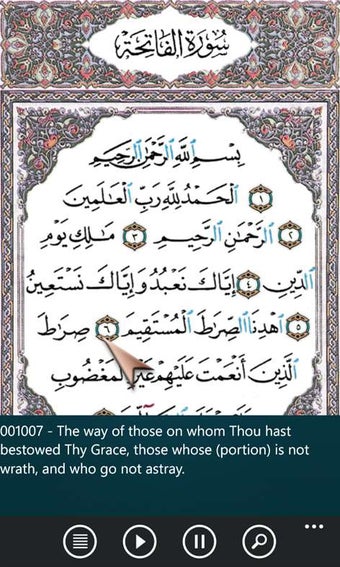 سُورَةُ الفَاتِحَة
بِسْمِ اللَّهِ الرَّحْمَٰنِ الرَّحِيمِ
١ الْحَمْدُ لِلَّهِ رَبِّ الْعَالَمِينَ
٢ الرَّحْمَٰنِ الرَّحِيمِ ٣ مَالِكِ يَوْمِ
الدِّينِ ٤ إِيَّاكَ نَعْبُدُ وَإِيَّاكَ نَسْتَعِينُ
٥ اهْدِنَا الصِّرَاطَ الْمُسْتَقِيمَ ٦ صِرَاطَ
الَّذِينَ أَنْعَمْتَ عَلَيْهِمْ غَيْرِ الْمَغْضُوبِ
001007 - The way of those on whom Thou hast
bestowed Thy Grace, those whose (portion) is not
wrath, and who go not astray.